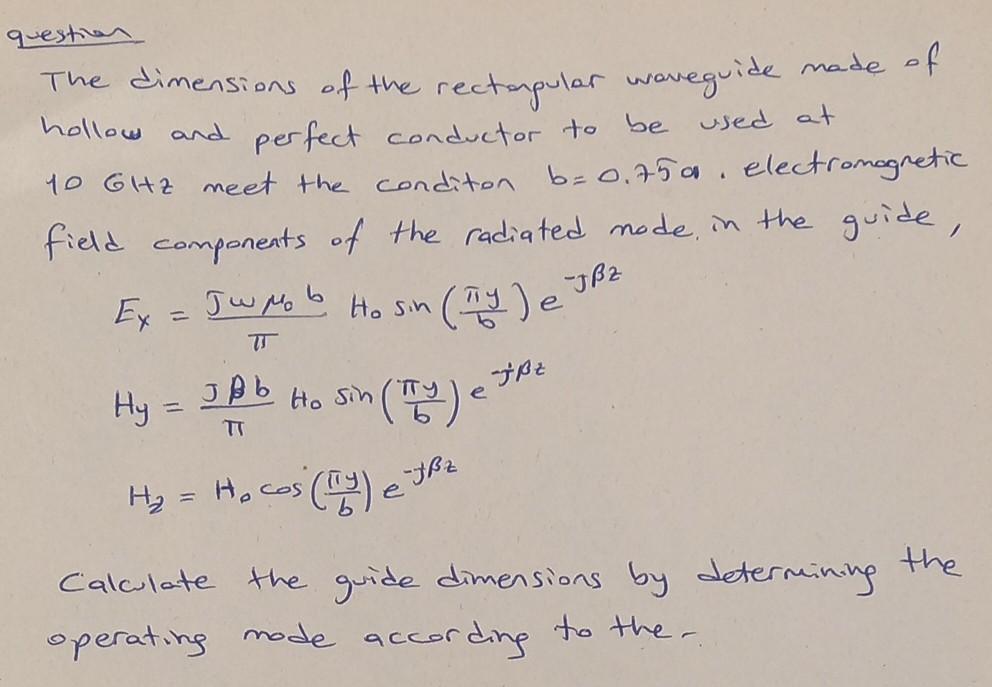 question
The dimensions of the rectangular waveguide made of
hollow and perfect conductor to be used at
10 GHz meet the conditon b=0.75a. electromagnetic
field components of the radiated mode in the guide,
Ex = Jωμ₀b/π H₀ sin(πy/b) e^-jβz
Hy = Jβb/π H₀ sin(πy/b) e^-jβz
Hz = H₀ cos(πy/b) e^-jβz
Calculate the guide dimensions by determining the
operating mode according to the-